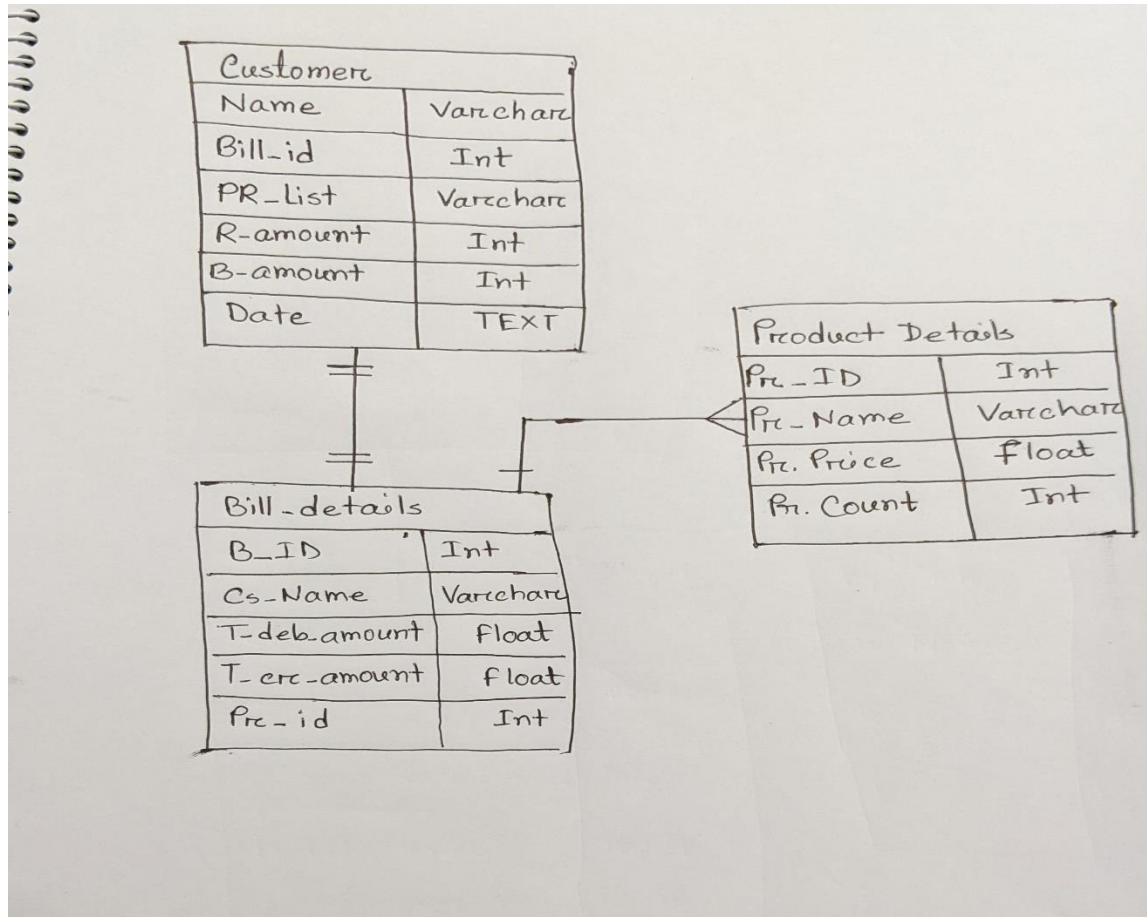 Customer
Name Varchar
Bill_id Int
PR_List Varchar
R-amount Int
B-amount Int
Date TEXT
Product Details
Pr_ID Int
Pr_Name Varchar
Pr. Price float
Pr. Count Int
Bill_details
B_ID Int
Cs_Name Varchar
T_deb_amount float
T_cr_amount float
Pr_id Int